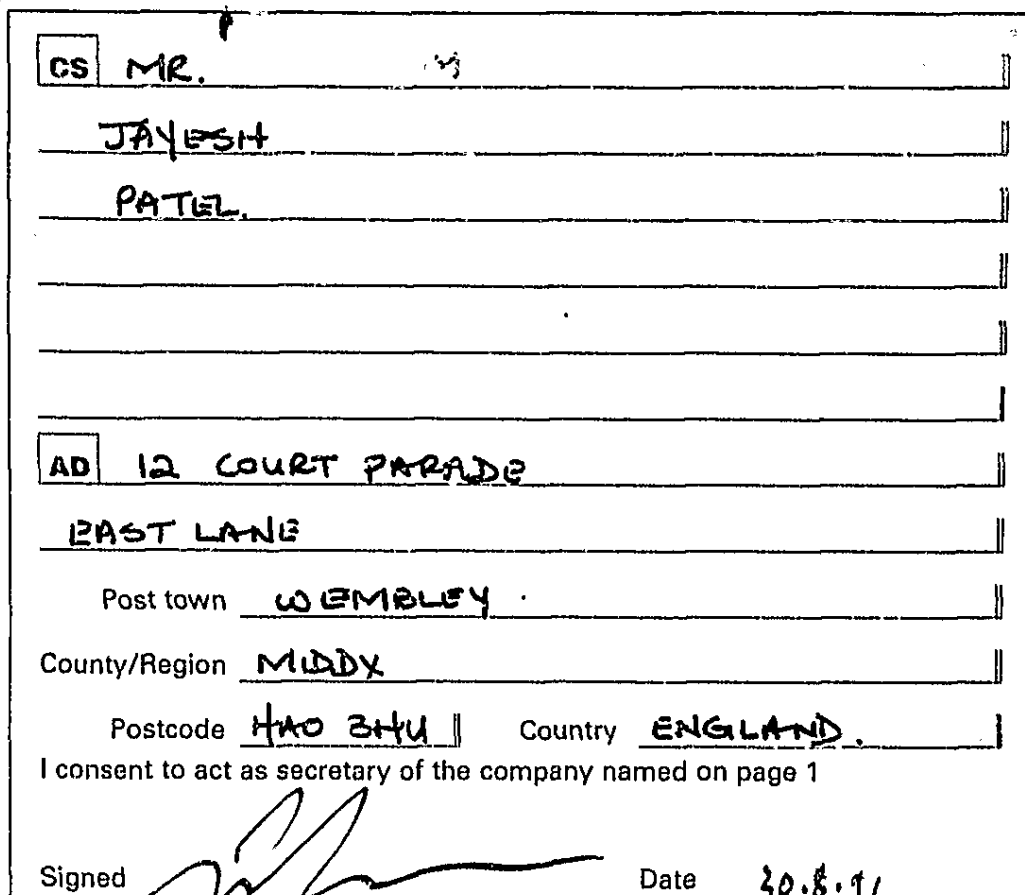 CS MR.
JAYESH
PATEL.
AD 12 COURT PARADE
EAST LANE
Post town WEMBLEY
County/Region MIDDX
Postcode HAO 3HU Country ENGLAND.
I consent to act as secretary of the company named on page 1
Signed Date 20.8.91